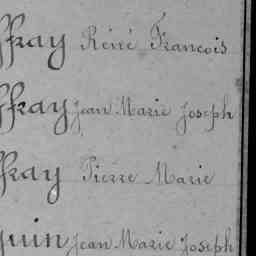 ffray Réné François
ffray Jean Marie Joseph
ffray Pierre Marie
quin Jean Marie Joseph